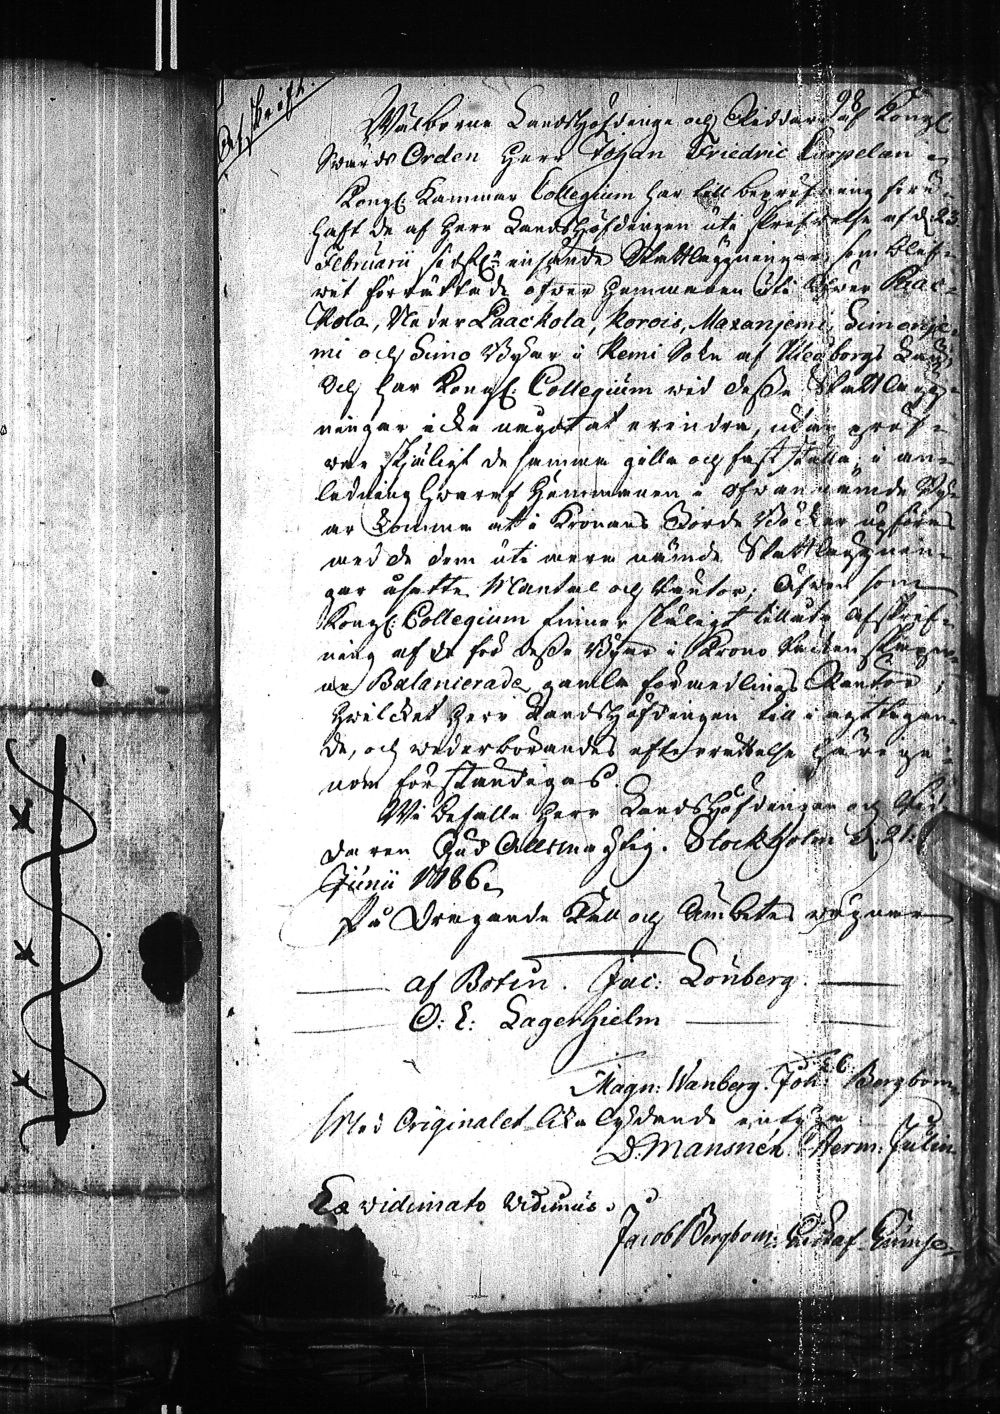 98
Afskrift.
Wälborne Landshöfdinge och Riddare af Kongl.
Swärds Orden Herr Johan Friedric Carpelan
Kongl: Kammar Collegium har till bepröfning före-
haft de af Herr Landshöfdingen uti skrifwelse af d. 23.
Februarii insände Skattläggningar, som blef-
wit förrättade öfwer Hemmanen uti Öfwer Raac-
kola, Neder Laackola, Korois, Maxanjemi, Simonje-
mi och Simo Byar i Kemi Sokn af Uleåborgs Län;
Och har Kongl: Collegium wid desse Skattlägg-
ningar icke något at erindra, utan pröf-
war skäligt de samma gilla och fastställa; i an-
ledning hwaraf Hemmanen i ofwannämde By-
ar komma att i Kronans Jorde Böcker upföras
med de dem uti mera nämde Skattläggnin-
gar åsatte Mantal och Räntor; Äfwen som
Kongl: Collegium finner skäligt tillåta afskrif-
ning af de för desse Byar i Krono Räken
Balancerade gamla förmedlings Räntor;
Hwilcket Herr Landshöfdingen till iagttagan-
de, och wederbörandes efterrättelse härige-
nom förständigas.
Wi befalla Herr Landshöfdingen och Rid-
daren Gud Allsmächtig. Stockholm d. 21.
Junii 1786.
På Dragande Kall och Ämbetes wägnar
af Botin. Jac: Lönberg.
O: L: Lagerhielm
Magn: Wanberg. Joh: Bergbom
Med Originalet lika lydande intyga
D. Mansnér. Herm: Julin
Ex vidimato vidimus.
Jacob Bergbom. Gustaf